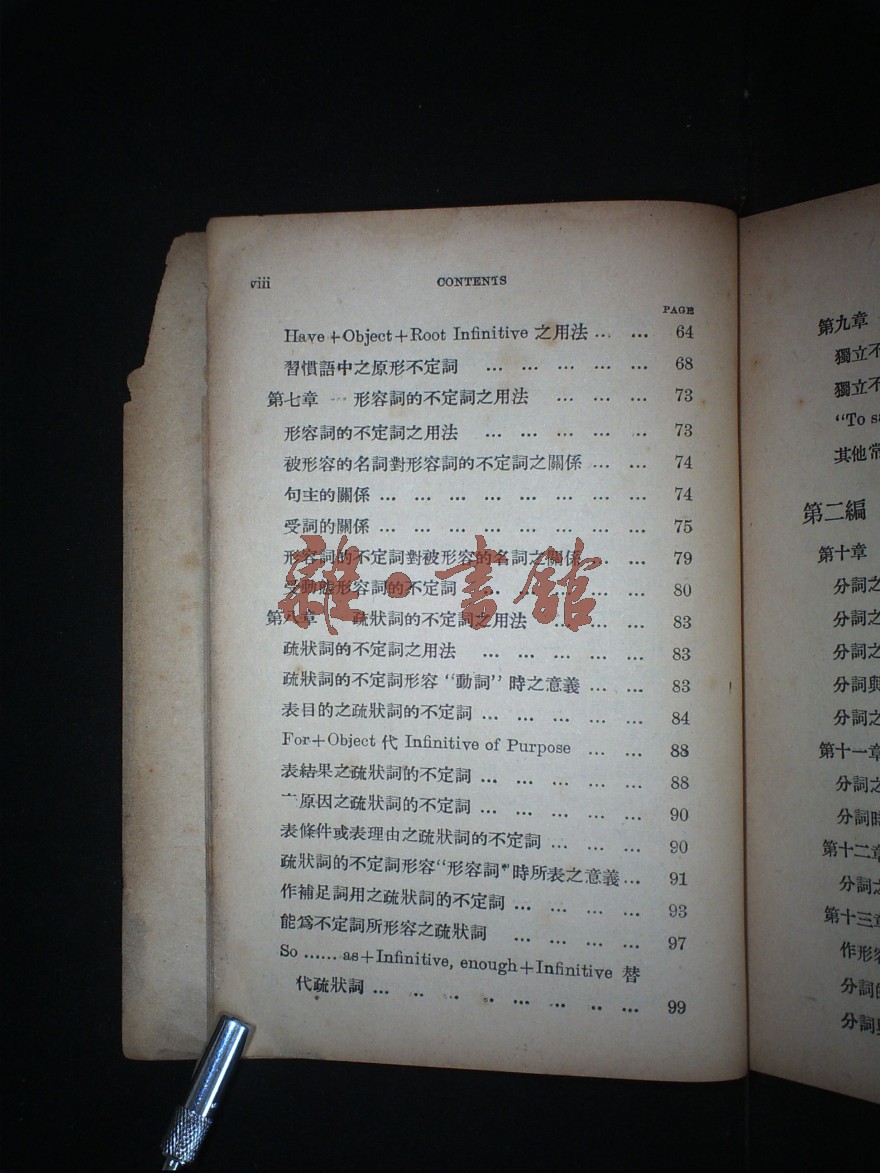 viii CONTENTS
PAGE
Have+Object+Root Infinitive 之用法 ... ... 64
習慣語中之原形不定詞 ... ... ... ... ... 68
第七章 形容詞的不定詞之用法 ... ... ... 73
形容詞的不定詞之用法 ... ... ... ... ... 73
被形容的名詞對形容詞的不定詞之關係 ... ... 74
句主的關係 ... ... ... ... ... ... ... ... 74
受詞的關係 ... ... ... ... ... ... ... ... 75
形容詞的不定詞對被形容的名詞之關係 ... ... 79
受動態形容詞的不定詞 ... ... ... ... ... 80
第八章 疏狀詞的不定詞之用法 ... ... ... 83
疏狀詞的不定詞之用法 ... ... ... ... ... 83
疏狀詞的不定詞形容“動詞”時之意義 ... ... 83
表目的之疏狀詞的不定詞 ... ... ... ... ... 84
For+Object 代 Infinitive of Purpose ... ... 88
表結果之疏狀詞的不定詞 ... ... ... ... ... 88
原因之疏狀詞的不定詞 ... ... ... ... ... 90
表條件或表理由之疏狀詞的不定詞 ... ... ... 90
疏狀詞的不定詞形容“形容詞”時所表之意義 ... 91
作補足詞用之疏狀詞的不定詞 ... ... ... ... 93
能爲不定詞所形容之疏狀詞 ... ... ... ... 97
So ...... as+Infinitive, enough+Infinitive 替
代疏狀詞 ... ... ... ... ... ... ... ... 99
雜·書館
第九章
獨立不
獨立不
“To s
其他常
第二編
第十章
分詞之
分詞之
分詞之
分詞與
分詞之
第十一章
分詞之
分詞時
第十二章
分詞之
第十三章
作形容
分詞的
分詞與